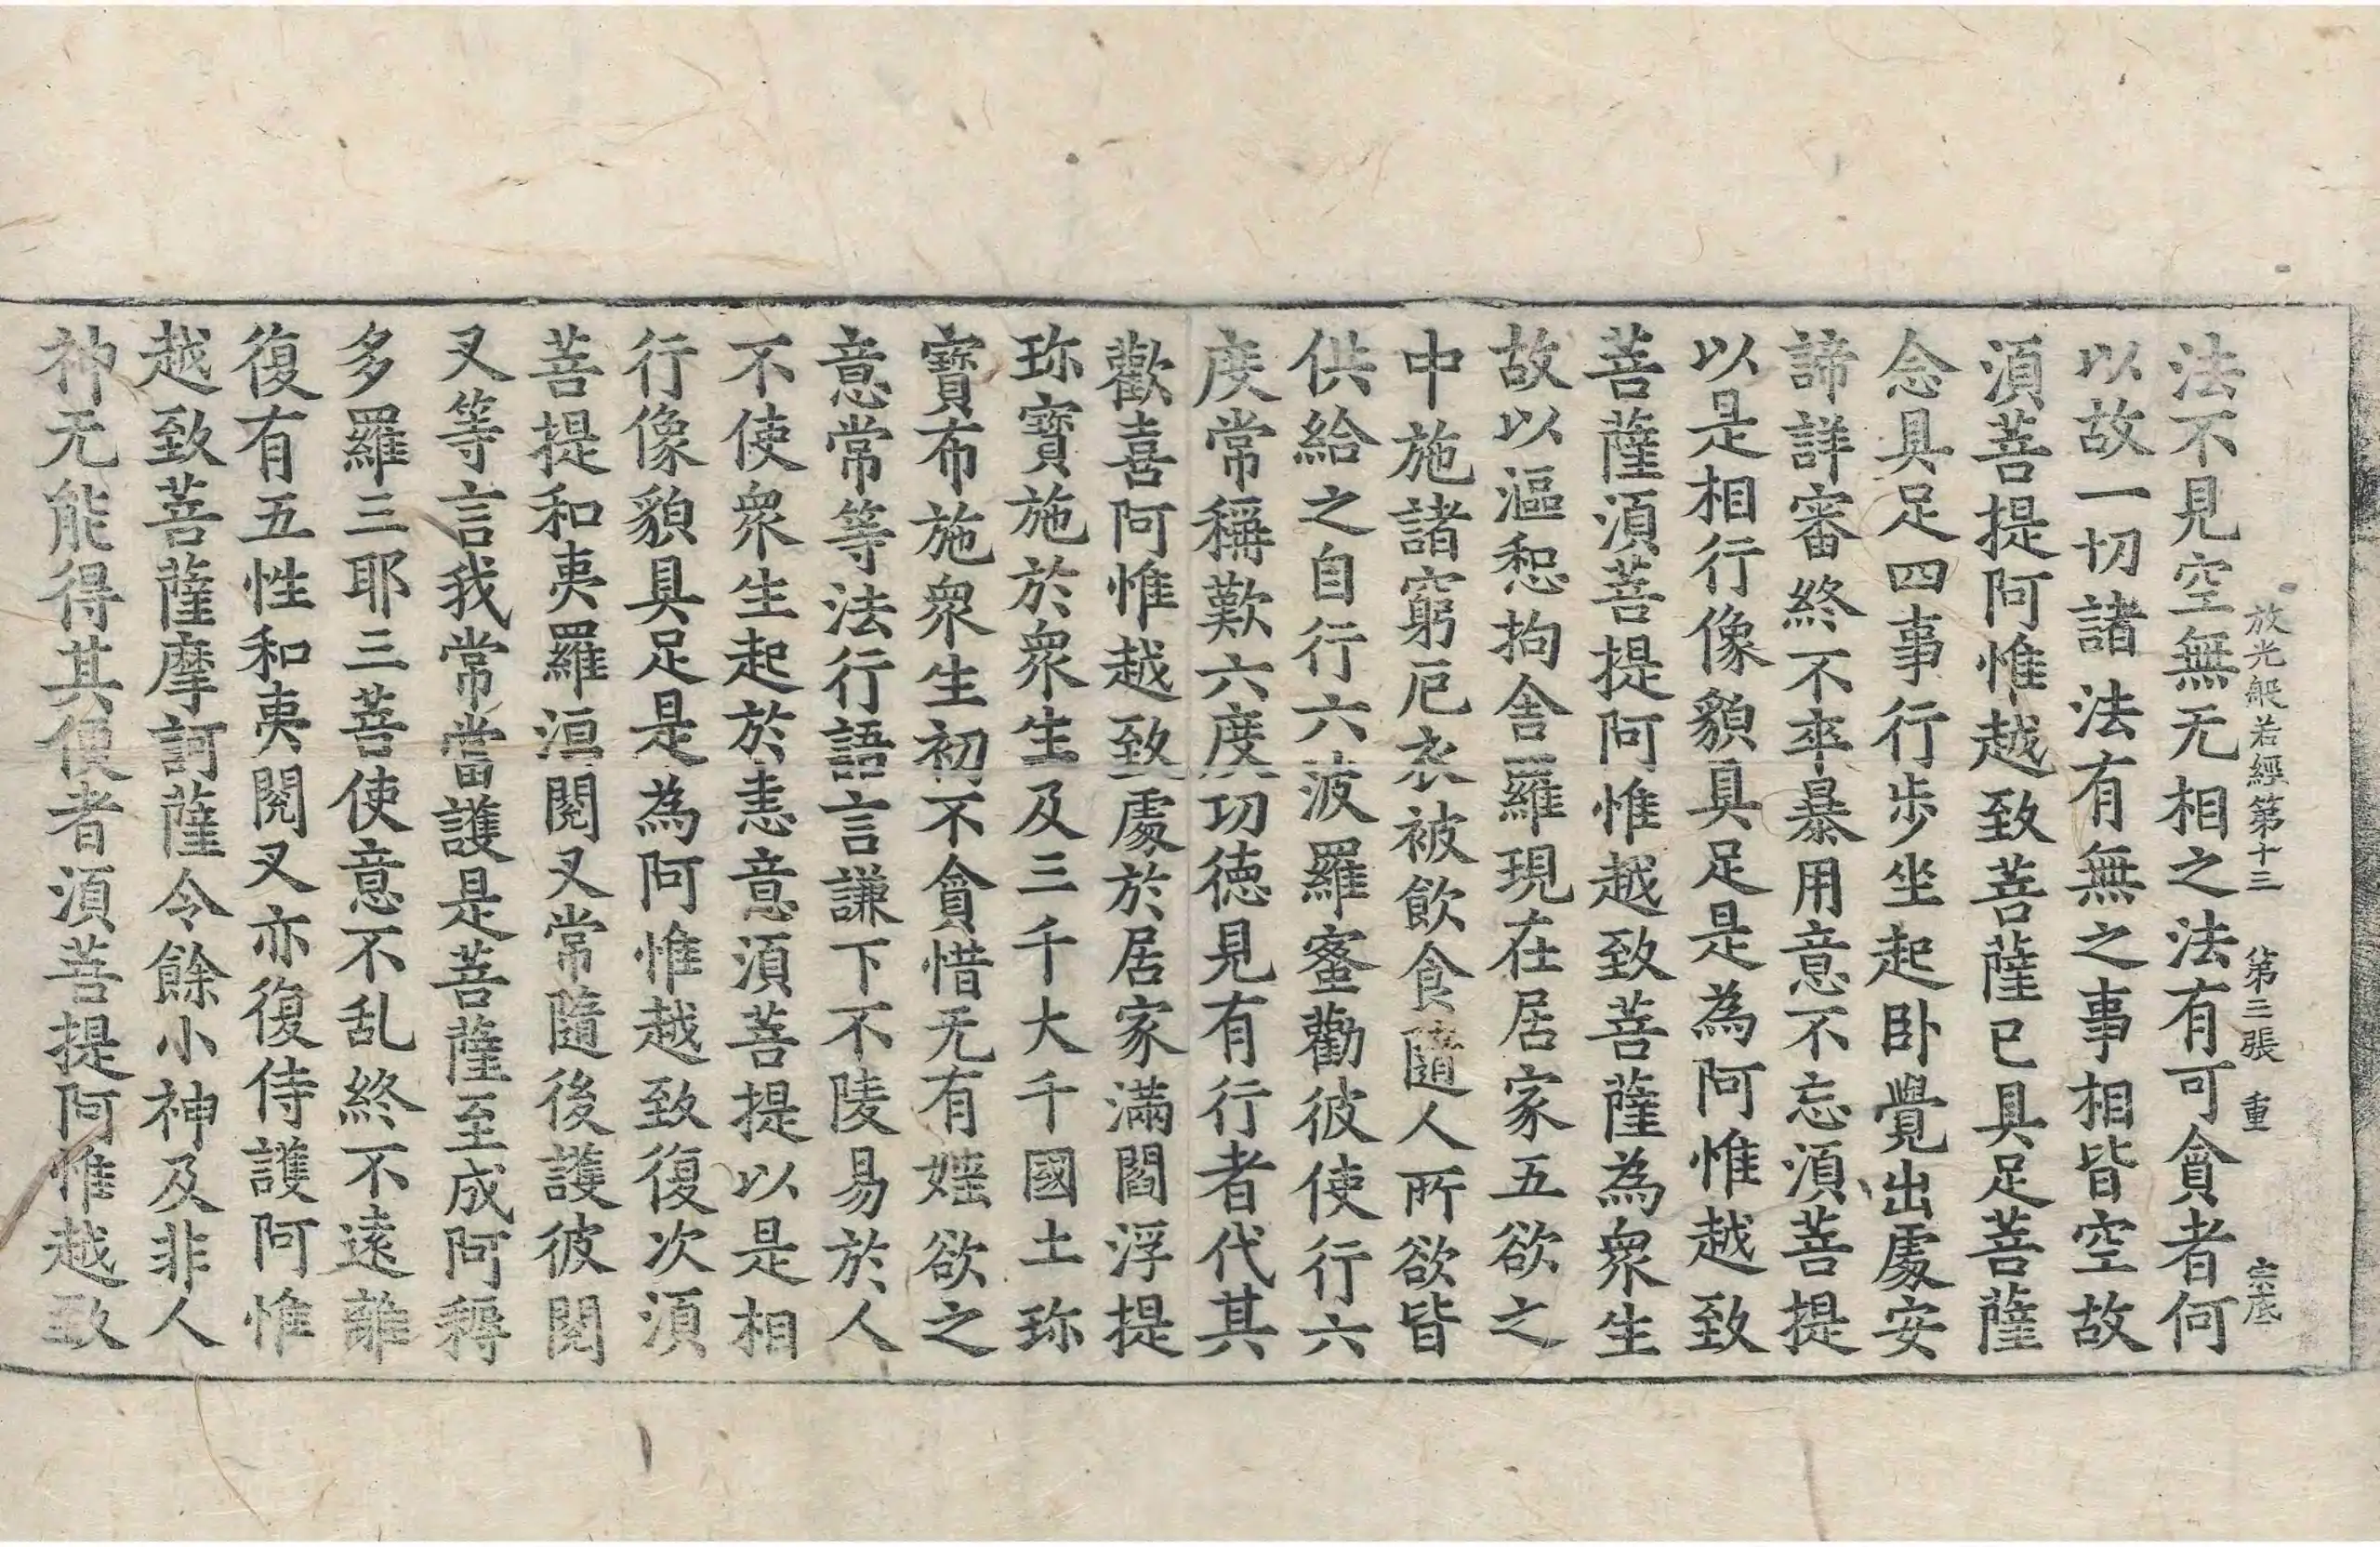 放光般若經第十三 第三張 重 宗底
法不見空無无相之法有可貪者何
以故一切諸法有無之事相皆空故
須菩提阿惟越致菩薩已具足菩薩
念具足四事行步坐起卧覺出處安
諦詳審終不卒暴用意不忘須菩提
以是相行像貌具足是為阿惟越致
菩薩須菩提阿惟越致菩薩為衆生
故以漚惒拘舍羅現在居家五欲之
中施諸窮厄衣被飲食隨人所欲皆
供給之自行六波羅蜜勸彼使行六
度常稱歎六度功德見有行者代其
歡喜阿惟越致處於居家滿閻浮提
珎寶施於衆生及三千大千國土珎
寶布施衆生初不貪惜无有婬欲之
意常等法行語言謙下不陵易於人
不使衆生起於恚意須菩提以是相
行像貌具足是為阿惟越致復次須
菩提和夷羅洹閱叉常隨後護彼閱
叉等言我常當護是菩薩至成阿耨
多羅三耶三菩使意不乱終不遠離
復有五性和夷閱叉亦復侍護阿惟
越致菩薩摩訶薩令餘小神及非人
神无能得其便者須菩提阿惟越致